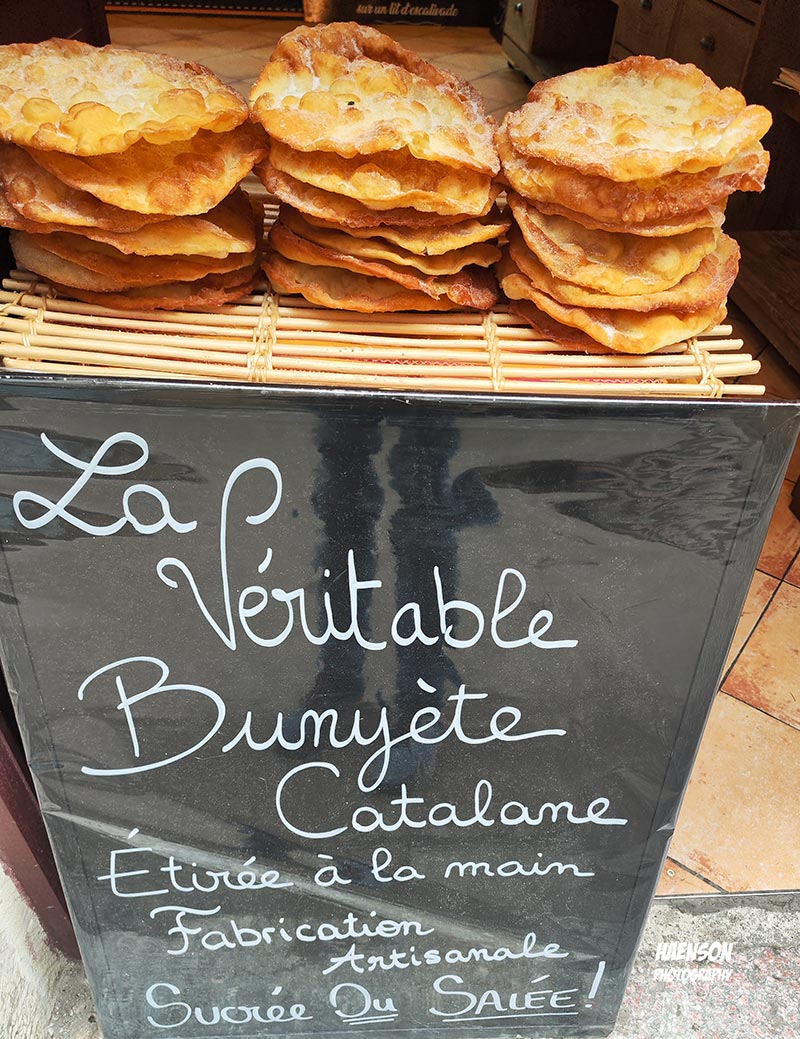 sur un lit d'escalivade
La
Véritable
Bunyète
Catalane
Étirée à la main
Fabrication
Artisanale
Sucrée Ou Salée!
HAENSON
PHOTOGRAPHY